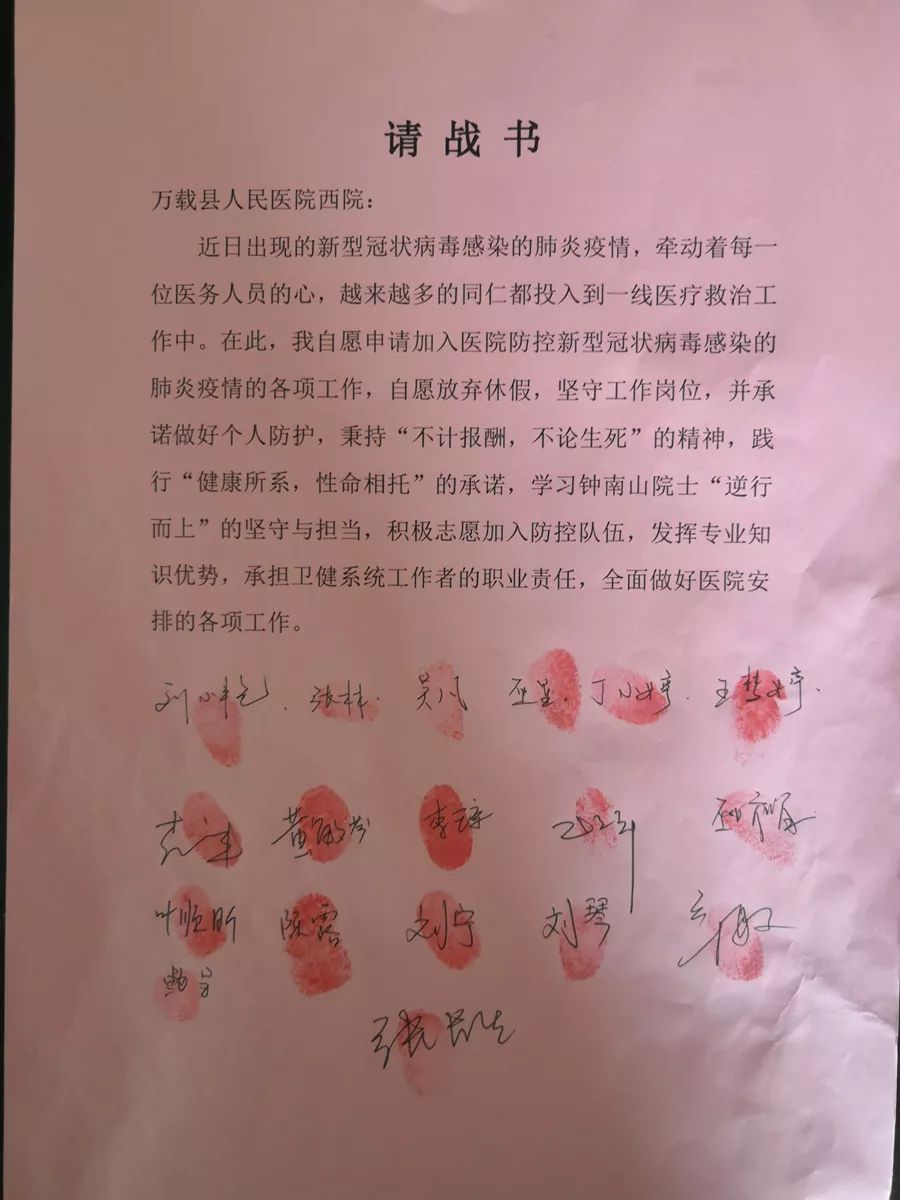 请战书
万载县人民医院西院：
近日出现的新型冠状病毒感染的肺炎疫情，牵动着每一
位医务人员的心，越来越多的同仁都投入到一线医疗救治工
作中。在此，我自愿申请加入医院防控新型冠状病毒感染的
肺炎疫情的各项工作，自愿放弃休假，坚守工作岗位，并承
诺做好个人防护，秉持“不计报酬，不论生死”的精神，践
行“健康所系，性命相托”的承诺，学习钟南山院士“逆行
而上”的坚守与担当，积极志愿加入防控队伍，发挥专业知
识优势，承担卫健系统工作者的职业责任，全面做好医院安
排的各项工作。
张林 吴凡 丁小婷 王梦婷
叶顺昕 陈露 刘宁 刘琴